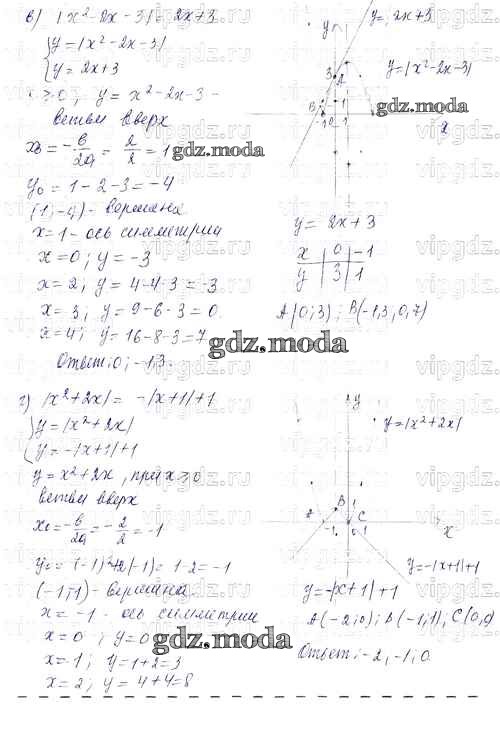 в) |x² - 2x - 3| = 2x + 3
{ y = |x² - 2x - 3|
{ y = 2x + 3
x ≥ 0, y = x² - 2x - 3 -
ветви вверх
xв = -в/2a = 2/2 = 1
y₀ = 1 - 2 - 3 = -4
(1; -4) - вершина
x = 1 - ось симметрии
x = 0; y = -3
x = 2; y = 4 - 4 - 3 = -3
x = 3; y = 9 - 6 - 3 = 0
x = 4; y = 16 - 8 - 3 = 7
Ответ: 0; -1,3
y = 2x + 3
y = |x² - 2x - 3|
3 A
B
-1 0 1
x
y = 2x + 3
x 0 -1
y 3 1
A(0; 3); B(-1,3; 0,7)
г) |x² + 2x| = -|x + 1| + 1
{ y = |x² + 2x|
{ y = -|x + 1| + 1
y = x² + 2x, при x ≥ 0
ветви вверх
x₀ = -в/2a = -2/2 = -1
y₀ = (-1)² + 2(-1) = 1 - 2 = -1
(-1; 1) - вершина
x = -1 - ось симметрии
x = 0; y = 0
x = 1; y = 1 + 2 = 3
x = 2; y = 4 + 4 = 8
y
y = |x² + 2x|
A B 1 C
-1 0 1
x
y = -|x + 1| + 1
y = -|x + 1| + 1
A(-2; 0); B(-1; 1), C(0; 0)
Ответ: -2, -1, 0
gdz.moda
gdz.moda
gdz.moda
gdz.moda
gdz.moda
vipgdz.ru